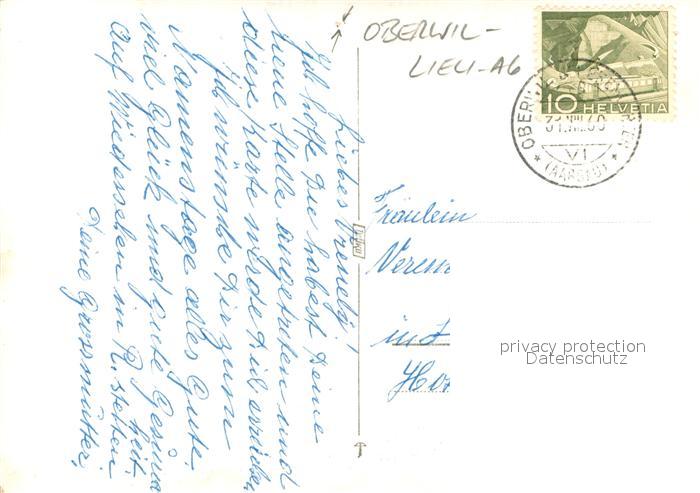 OBERWIL-
LIELI-AG
10 HELVETIA
31.VIII.60
VI
(AARGAU)
Liebes Vreneli!
Ich hoffe Du habest Deine
neue Stelle angetreten und
diese Karte werde Dich erreichen
Ich wünsche Dir zum
Namenstage alles Gute.
viel Glück und gute Gesund
heit.
Auf Wiedersehen in R.stetten
Deine Grossmutter.
Fräulein
Veren
in
privacy protection
Datenschutz